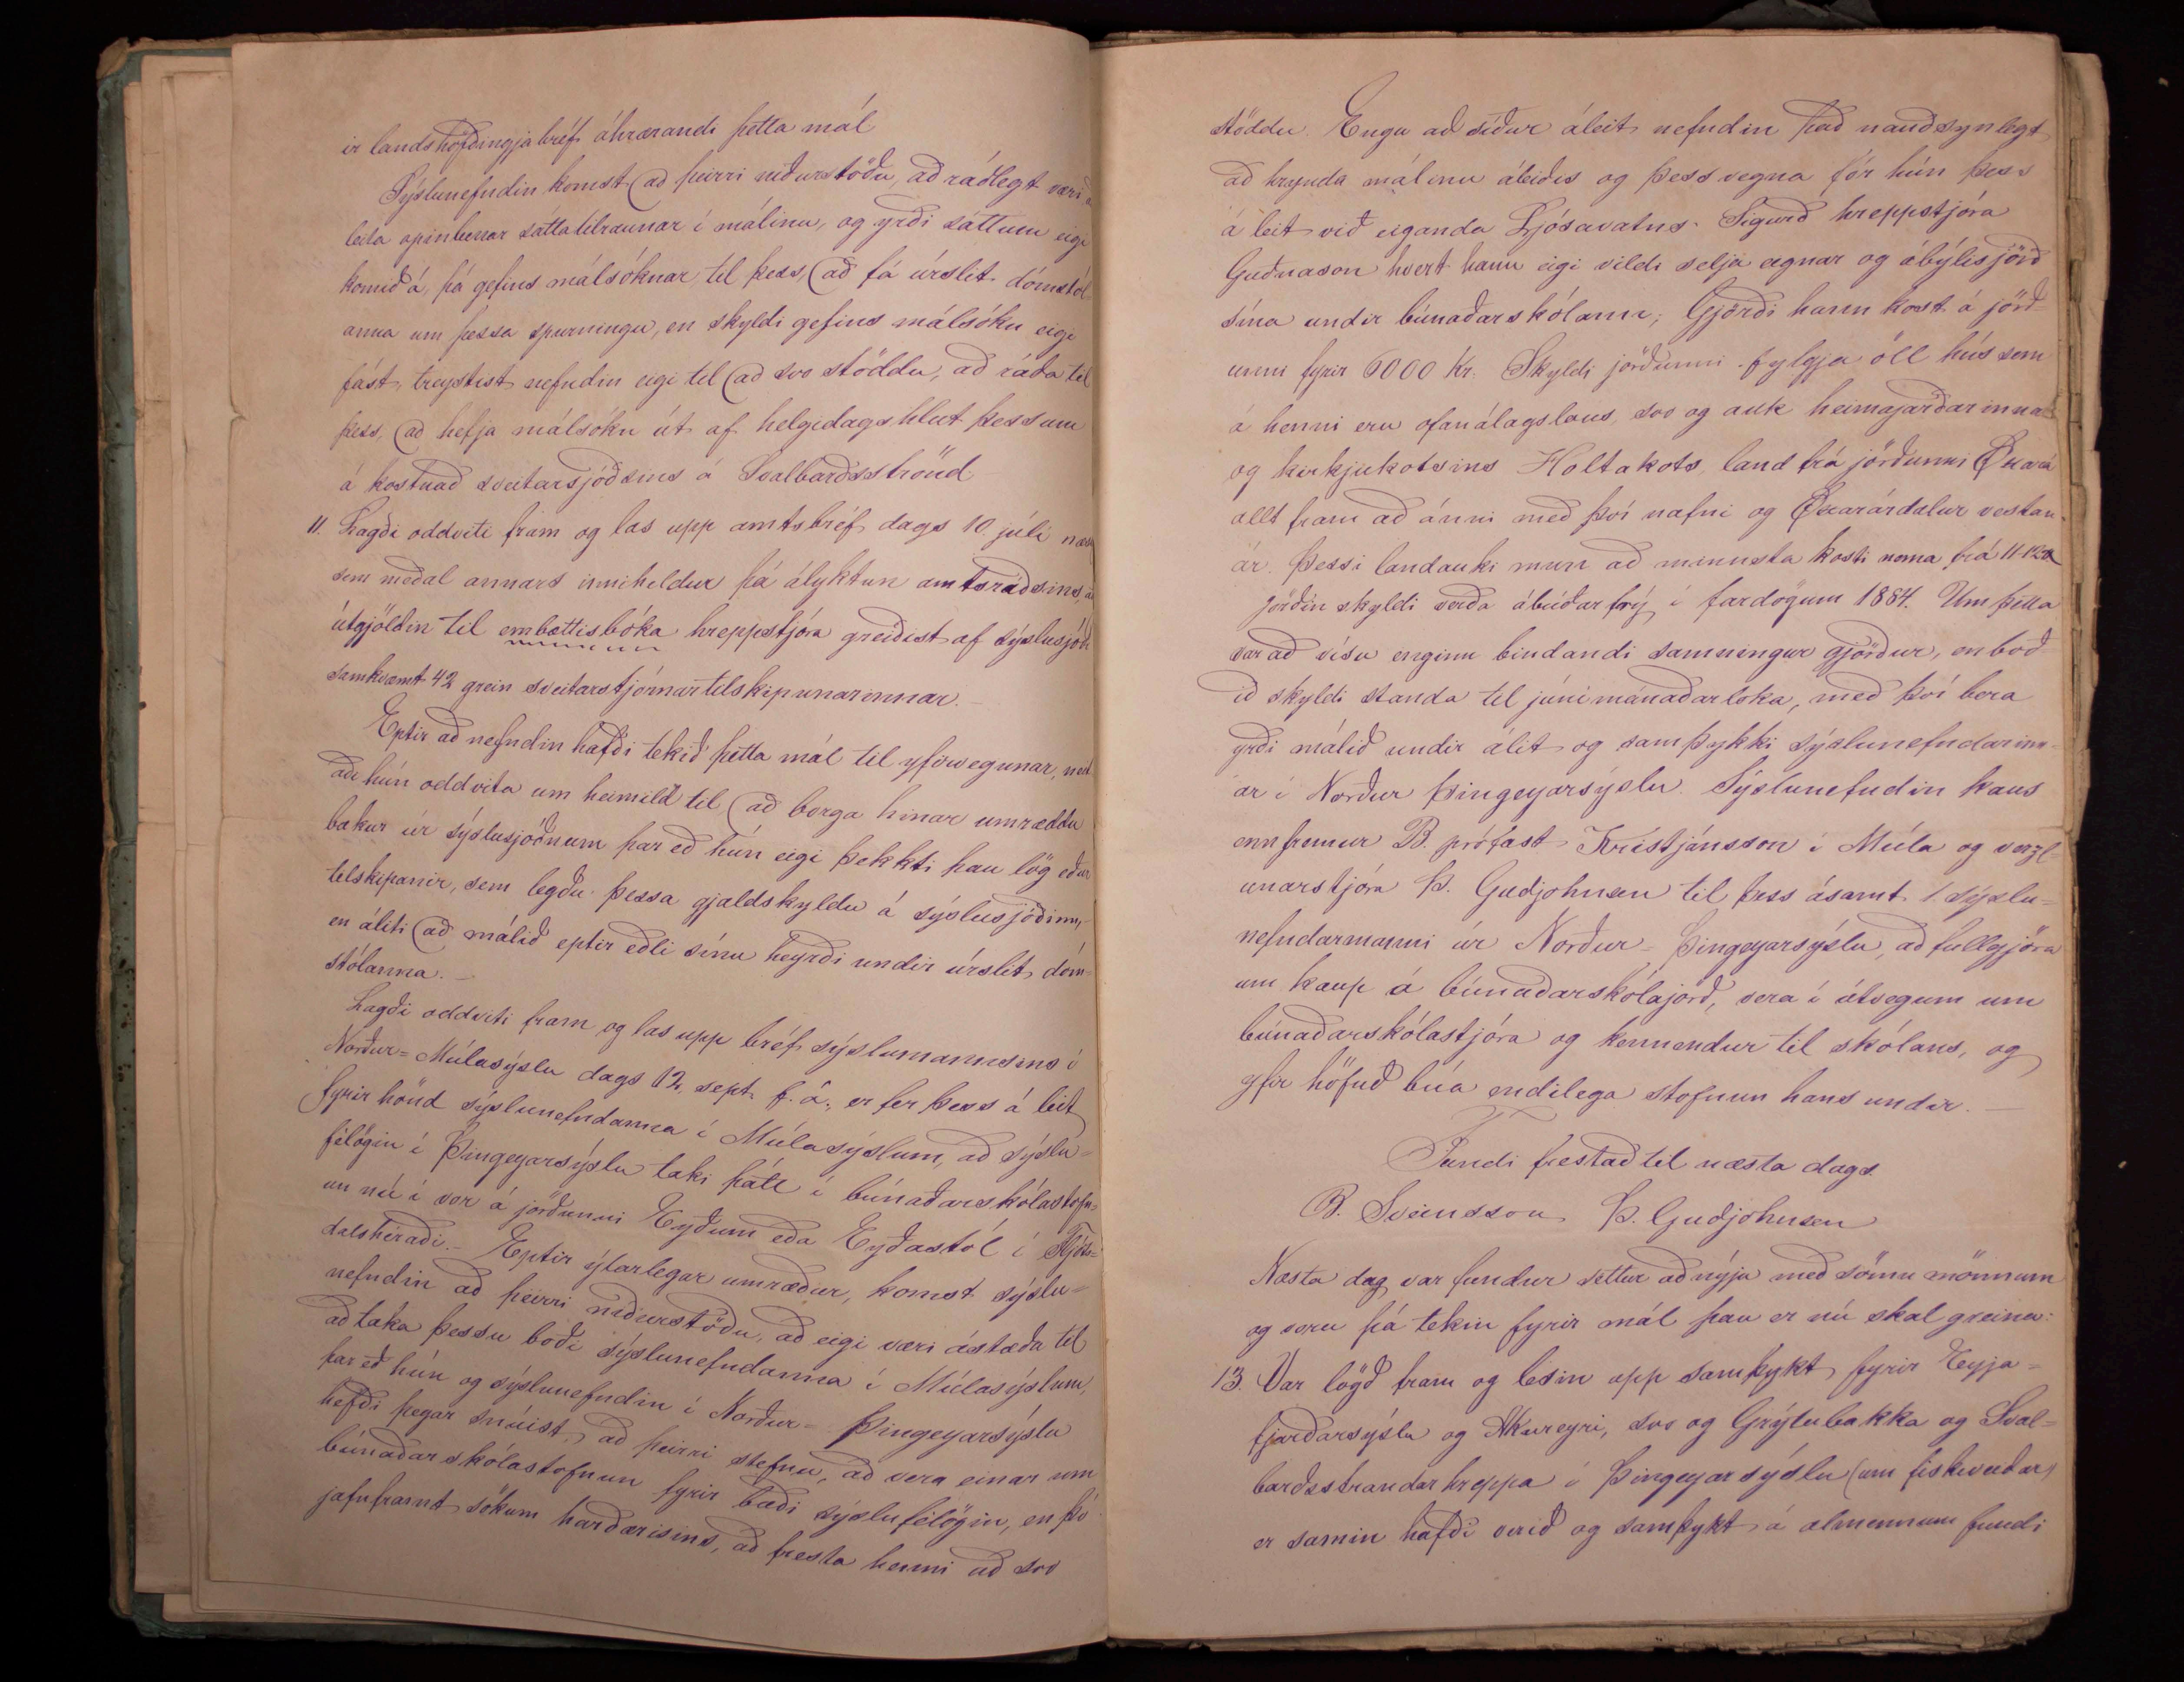 ir landshöfðingjabréf áhrærandi þetta mál
Sýslunefndin komst að þeirri niðurstöðu, að ráðlegt væri að
leita opinberrar sáttatilraunar í málinu, og yrði sáttum eigi
komið á, þá gefins málsóknar til þess, að fá úrslit dómstól-
anna um þessa spurningu, en skyldi gefins málsókn eigi
fást, treystist nefndin eigi til að svo stöddu, að ráða til
þess, að hefja málsókn út af helgidagshlut þessum
á kostnað sveitarsjóðsins á Svalbarðsströnd
11. Lagði oddviti fram og las upp amtsbréf dags 10. júli næstl
sem meðal annars inniheldur þá ályktun amtsráðsins, að
útgjöldin til embættisbóka hreppstjóra greiðist af sýslusjóði
samkvæmt 42 grein sveitarstjórnartilskipunarinnar.
Eptir að nefndin hafði tekið þetta mál til yfirvegunar, neit
aði hún oddvita um heimild til að borga hinar umræddu
bækur úr sýslusjóðnum þar eð hún eigi þekkti þau lög eður
tilskipanir, sem legðu þessa gjaldskyldu á sýslusjóðinn,
en áliti að málið eptir eðli sínu heyrði undir úrslit dóm-
stólanna.
Lagði oddviti fram og las upp bréf sýslumannsins í
Norður-Múlasýslu dags 12. sept. f. á., er fer þess á leit
fyrir hönd sýslunefndanna í Múlasýslum, að sýslu-
félögin í Þingeyarsýslu taki þátt í búnaðarskólastofn-
un nú í vor á jörðunni Eyðum eða Eyðastól í Fljóts-
dalshéraði. Eptir ýtarlegar umræður, komst sýslu-
nefndin að þeirri niðurstöðu, að eigi væri ástæða til
að taka þessu boði sýslunefndanna í Múlasýslum,
þar eð hún og sýslunefndin í Norður-Þingeyarsýslu
hefði þegar snúist að þeirri stefnu, að vera einar um
búnaðarskólastofnun fyrir bæði sýslufélögin, en þó
jafnframt sökum harðærisins, að fresta henni að svo
stöddu. Engu að síður áleit nefndin það nauðsynlegt
að hrynda málinu áleiðis og þess vegna fór hún þess
á leit við eiganda Ljósavatns Sigurð hreppstjóra
Guðnason hvert hann eigi vildi selja eignar og ábýlisjörð
sína undir búnaðarskólann; Gjörði hann kost á jörð-
unni fyrir 6000 Kr. Skyldi jörðunni fylgja öll hús sem
á henni eru ofanálagslaus, svo og auk heimajarðarinnar
og kirkjukotsins Holtakots, land frá jörðunni Öxará
allt fram að ánni með því nafni og Öxarárdalur vestan
ár. Þessi landauki mun að minnsta kosti nema frá 11-1200
jörðin skyldi verða ábúðarfrý í fardögum 1884. Um þetta
var að vísu enginn bindandi samningur gjörður, en boð
ið skyldi standa til júnimánaðarloka, með því bera
yrði málið undir álit og samþykki sýslunefndarinn-
ar í Norður Þingeyarsýslu. Sýslunefndin kaus
ennfremur B. prófast Kristjánsson í Múla og verzl-
unarstjóra Þ. Guðjohnsen til þess ásamt 1 sýslu-
nefndarmanni úr Norður-Þingeyarsýslu, að fullgjöra
um kaup á búnaðarskólajörð, vera í útvegum um
búnaðarskólastjóra og kennendur til skólans, og
yfir höfuð búa endilega stofnun hans undir.
Fundi frestað til næsta dags
B. Sveinsson Þ. Guðjohnsen
Næsta dag var fundur settur að nýju með sömu mönnum
og voru þá tekin fyrir mál þau er nú skal greina:
13. Var lögð fram og lesin upp samþykt fyrir Eyja-
fjarðarsýslu og Akureyri, svo og Grýtubakka og Sval-
barðsstrandarhreppa í Þingeyarsýslu (um fiskiveiðar)
er samin hafði verið og samþykt á almennum fundi